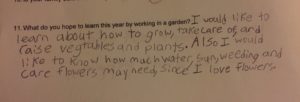 11. What do you hope to learn this year by working in a garden? I would like to
learn about how to grow, take care of, and
raise vegtables and plants. Also I would
like to know how much water, sun, weeding and
care flowers may need, since I love flowers.